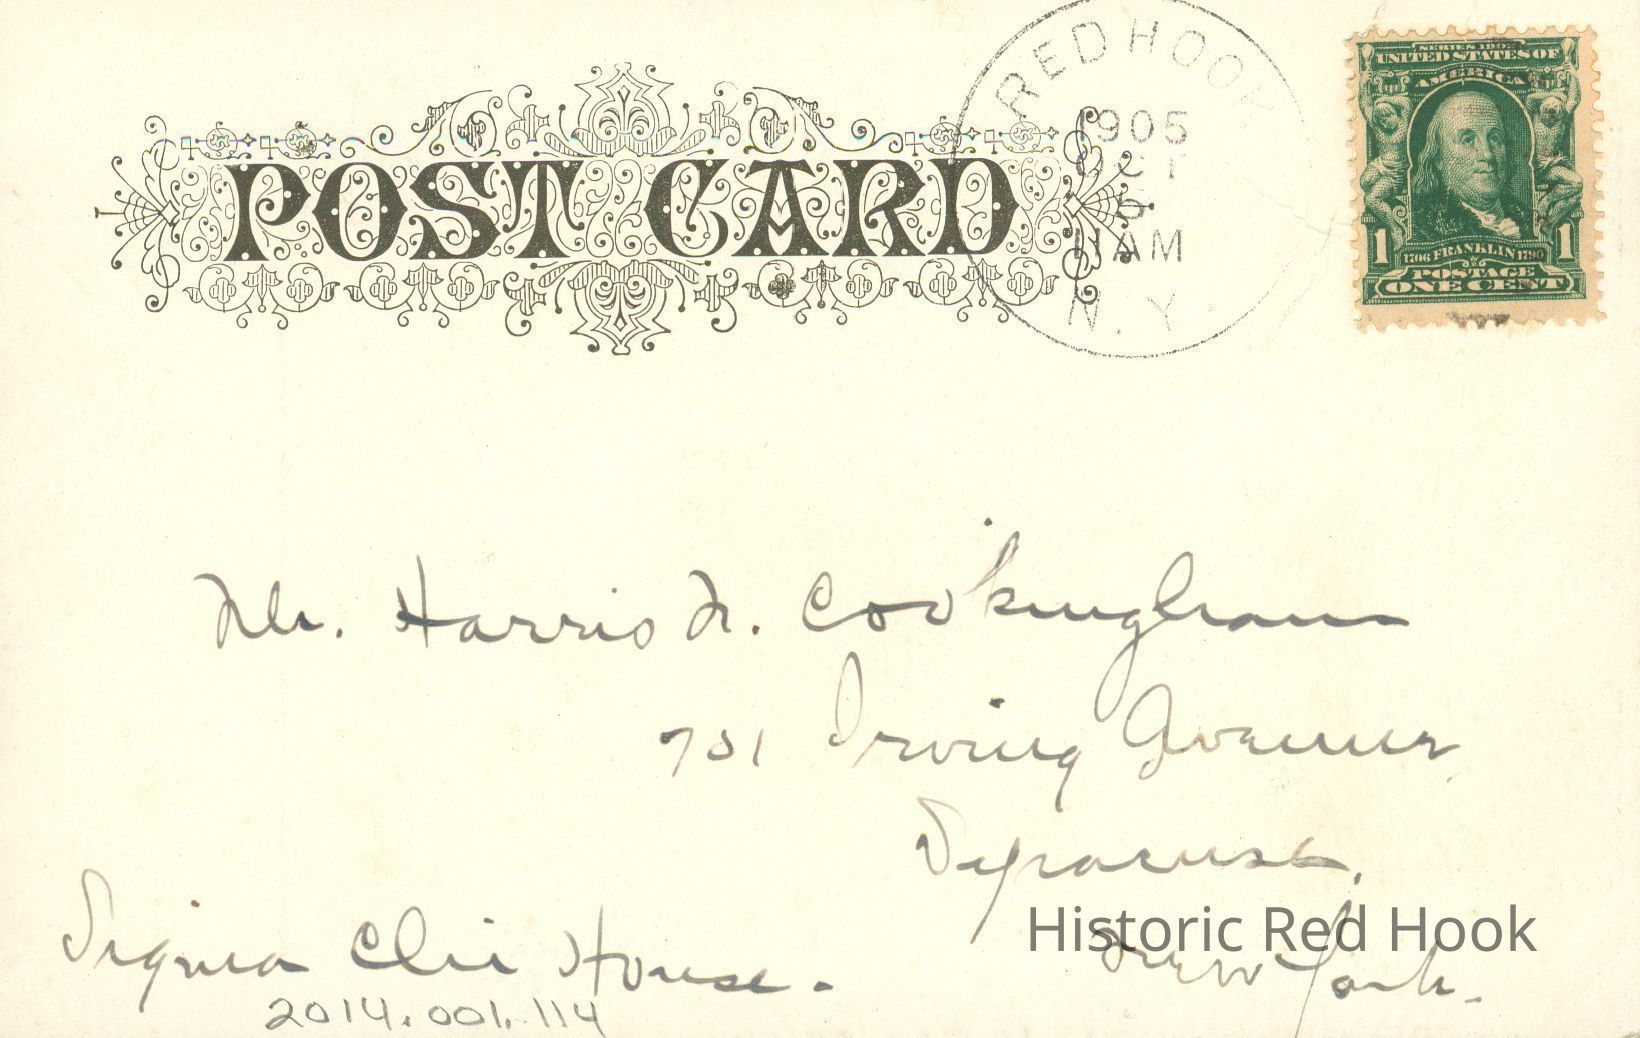 POST CARD
RED HOOK
1905
OCT
5
11 AM
N. Y.
SERIES 1902
UNITED STATES OF
AMERICA
1 1706 FRANKLIN 1790 1
POSTAGE
ONE CENT
Mr. Harris N. Cookingham
731 Irving Avenue,
Syracuse,
New York.
Sigma Chi House.
Historic Red Hook
2014.001.114